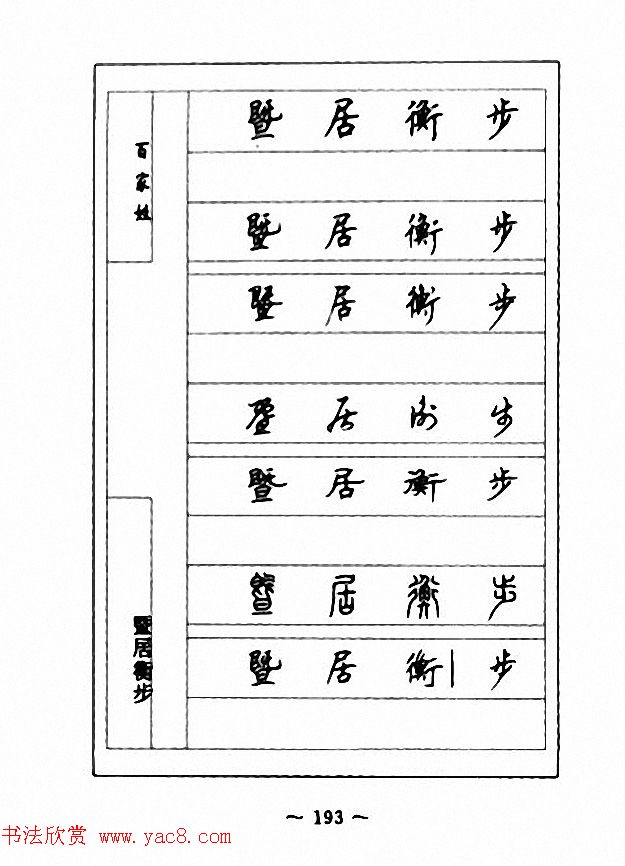 百家姓
暨居衡步
暨居衡步
暨居衡步
暨居衡步
暨居衡步
暨居衡步
暨居衡步
暨居衡步
～ 193 ～
书法欣赏 www.yac8.com